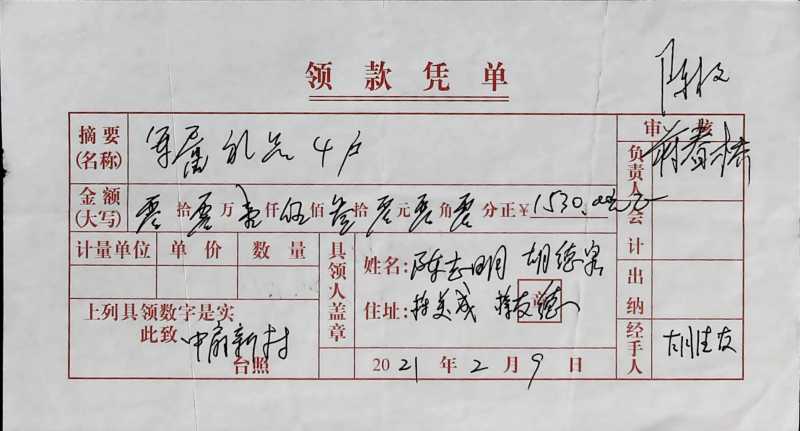 领款凭单
陈
摘要 军属礼品4户 审核
(名称) 负责人 蒋春桥
金额 零拾零万壹仟伍佰叁拾零元零角零分正¥1530.00元
(大写) 会计
计量单位 单价 数量 具领人盖章 姓名:陈志明 胡德泉
上列具领数字是实 住址:林美成 德 出纳
此致 中府新村 经手人 胡佳友
台照 2021年2月9日